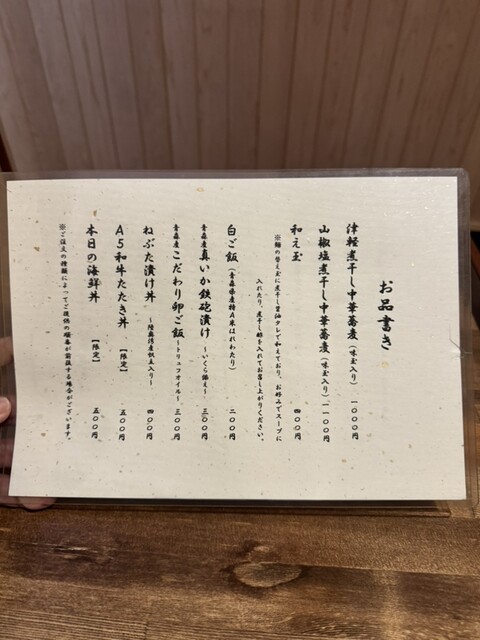 お品書き
津軽煮干し中華蕎麦(味玉入り) 一〇〇〇円
山椒塩煮干し中華蕎麦(味玉入り) 一一〇〇円
和え玉 四〇〇円
※麺の替え玉に煮干し醤油タレで和えており、お好みでスープに
入れたり、煮干し酢を入れてお召し上がりください。
白ご飯(青森県産特A米はれわたり) 二〇〇円
青森産真いか鉄砲漬け ~いくら添え~ 三〇〇円
青森産こだわり卵ご飯 ~トリュフオイル~ 三〇〇円
ねぶた漬け丼 ~陸奥湾産帆立入り~ 四〇〇円
A5和牛たたき丼 【限定】 五〇〇円
本日の海鮮丼 【限定】 五〇〇円
※ご注文の種類によってご提供の順番が前後する場合がございます。